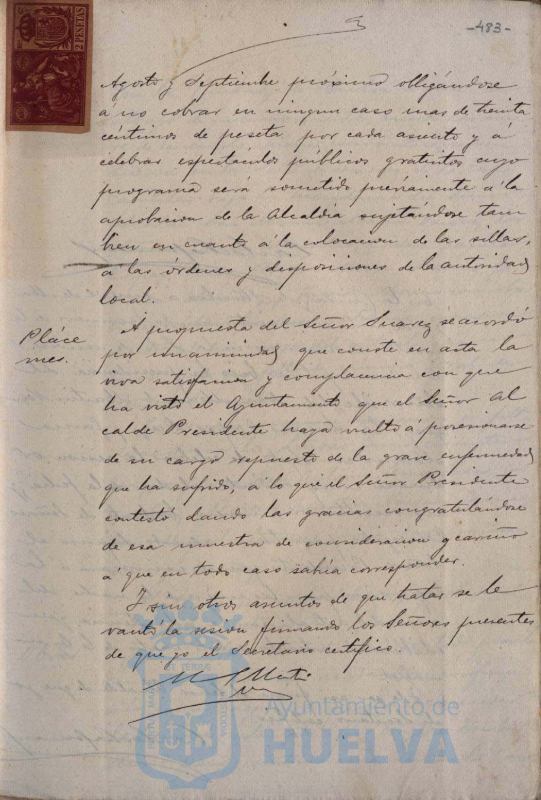 -483-
2 PESETAS
Agosto y Septiembre próximo obligándose
a no cobrar en ningun caso mas de treinta
céntimos de peseta por cada asiento y á
celebrar espectáculos públicos gratuitos cuyo
programa será sometido previamente á la
aprobacion de la Alcaldia sujetándose tam
bien en cuanto á la colocacion de las sillas,
a las órdenes y disposiciones de la autoridad
local.
Pláce
mes.
A propuesta del Señor Suarez se acordó
por unanimidad que conste en acta la
viva satisfaccion y complacencia con que
ha visto el Ayuntamiento que el Señor Al
calde Presidente haya vuelto á posesionarse
de su cargo repuesto de la grave enfermedad
que ha sufrido, a lo que el Señor Presidente
contestó dando las gracias congratulándose
de esa muestra de consideracion y cariño
á que en todo caso sabia corresponder.
Y sin otros asuntos de que tratar se le
vantó la sesion firmando los Señores presentes
de que yo el Secretario certifico.
Ayuntamiento de
HUELVA